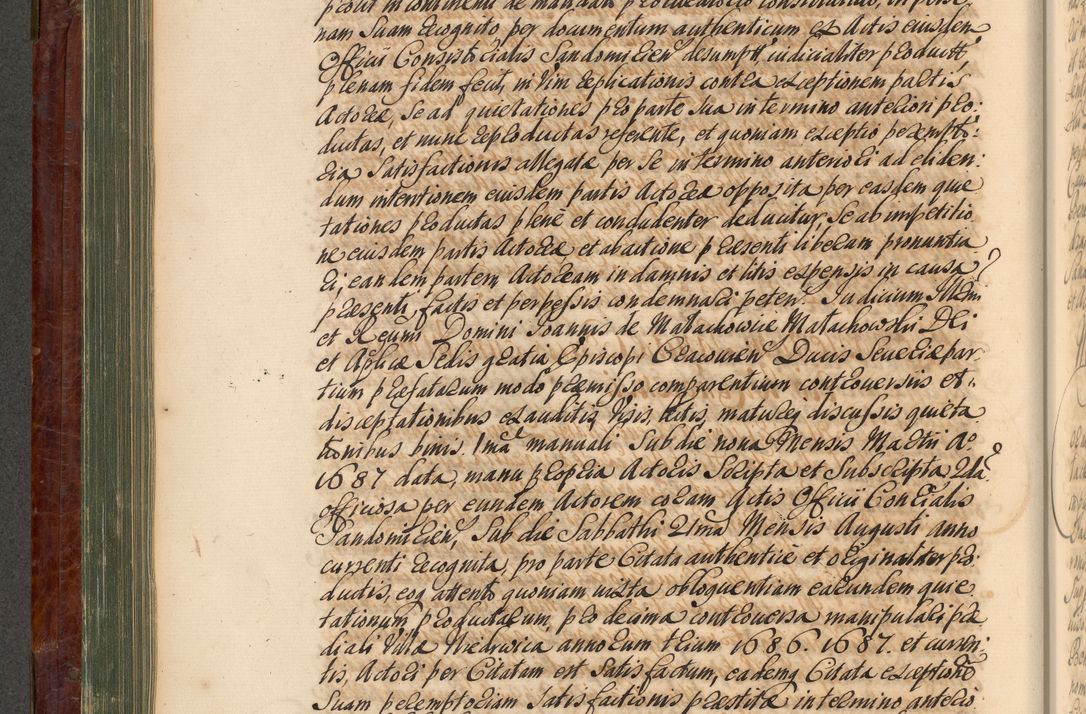 nam Suam recognito per documentum authenticum ex Actis eiusdem
Officii Consistorialis Sandomirien desumptt, iudicialiter productt,
plenam fidem fecit, in vim replicationis contra exceptionem partis
Actoreæ, se ad quietationes pro parte sua in termino anteriori pro:
ductas, et nunc reproductas referente, et quoniam exceptio perempto:
ria Satisfactionis allegatæ per se in termino anteriori ad eliden:
dum intentionem eiusdem partis Actoreæ opposita per easdem quie
tationes productas plenè et concludenter deducitur, Se ab impetitio
ne eiusdem partis Actoreæ et ab actione præsenti liberam pronuntia
ri, eandem partem Actoream in damnis et litis expensis in causa
præsenti factis et perpessis condemnari peten. Iudicium Illmi
et Reumi Domini Ioannis de Małachowice Małachowski Dei
et Aplicæ Sedis gratia Episcopi Cracouien Ducis Severiæ par:
tium præfatarum modo præmisso comparentium controuersiis et
disceptationibus exauditis, visis, lectis, matureq discussis quieta
tionibus binis. Ima manuali Sub die nona Mensis Martii Ao
1687 data, manu propria Actoris Scripta et Subscripta, 2da
officiosa per eundem Actorem coram Actis Officii Conrialis
Sandomirien, Sub die Sabbathi 2ima Mensis Augusti anno
currenti recognita, pro parte Citata authentice et originaliter pro:
ductis, eoq attento quoniam iuxta obloquentiam earundem quie
tationum productarum, pro decima controuersa manipulari præ
diali Villæ Niedrwica annorum trium 1686. 1687. et curren:
tis, Actori per Citatam est Satisfactum, eademq Citata exceptione
Suam peremptoriam Satisfactionis præstitæ in termino anterio